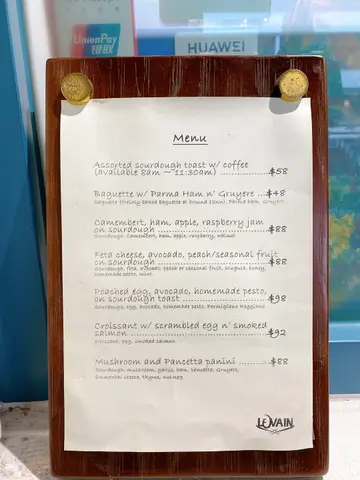 UnionPay
银联
HUAWEI
Menu
Assorted sourdough toast w/ coffee
(available 8am ~ 11:30am) ...................$58
Baguette w/ Parma Ham n' Gruyere ...$48
Baguette (freshly baked baguette at around 12nn), Parma ham, Gruyere
Camembert, ham, apple, raspberry jam
on sourdough ...................................$88
Sourdough, Camembert, ham, apple, raspberry, walnut
Feta cheese, avocado, peach/seasonal fruit
on sourdough ...................................$88
Sourdough, feta, avocado, peach or seasonal fruit, arugula, honey,
homemade pesto, mint
Poached egg, avocado, homemade pesto,
on sourdough toast ..........................$98
Sourdough, egg, avocado, homemade pesto, parmigiano reggiano
Croissant w/ scrambled egg n' smoked
salmon ..........................................$92
Croissant, egg, smoked salmon
Mushroom and Pancetta panini ..........$88
Sourdough, mushroom, garlic, ham, pancetta, Gruyere,
Emmental cheese, thyme, nutmeg
LEVAIN